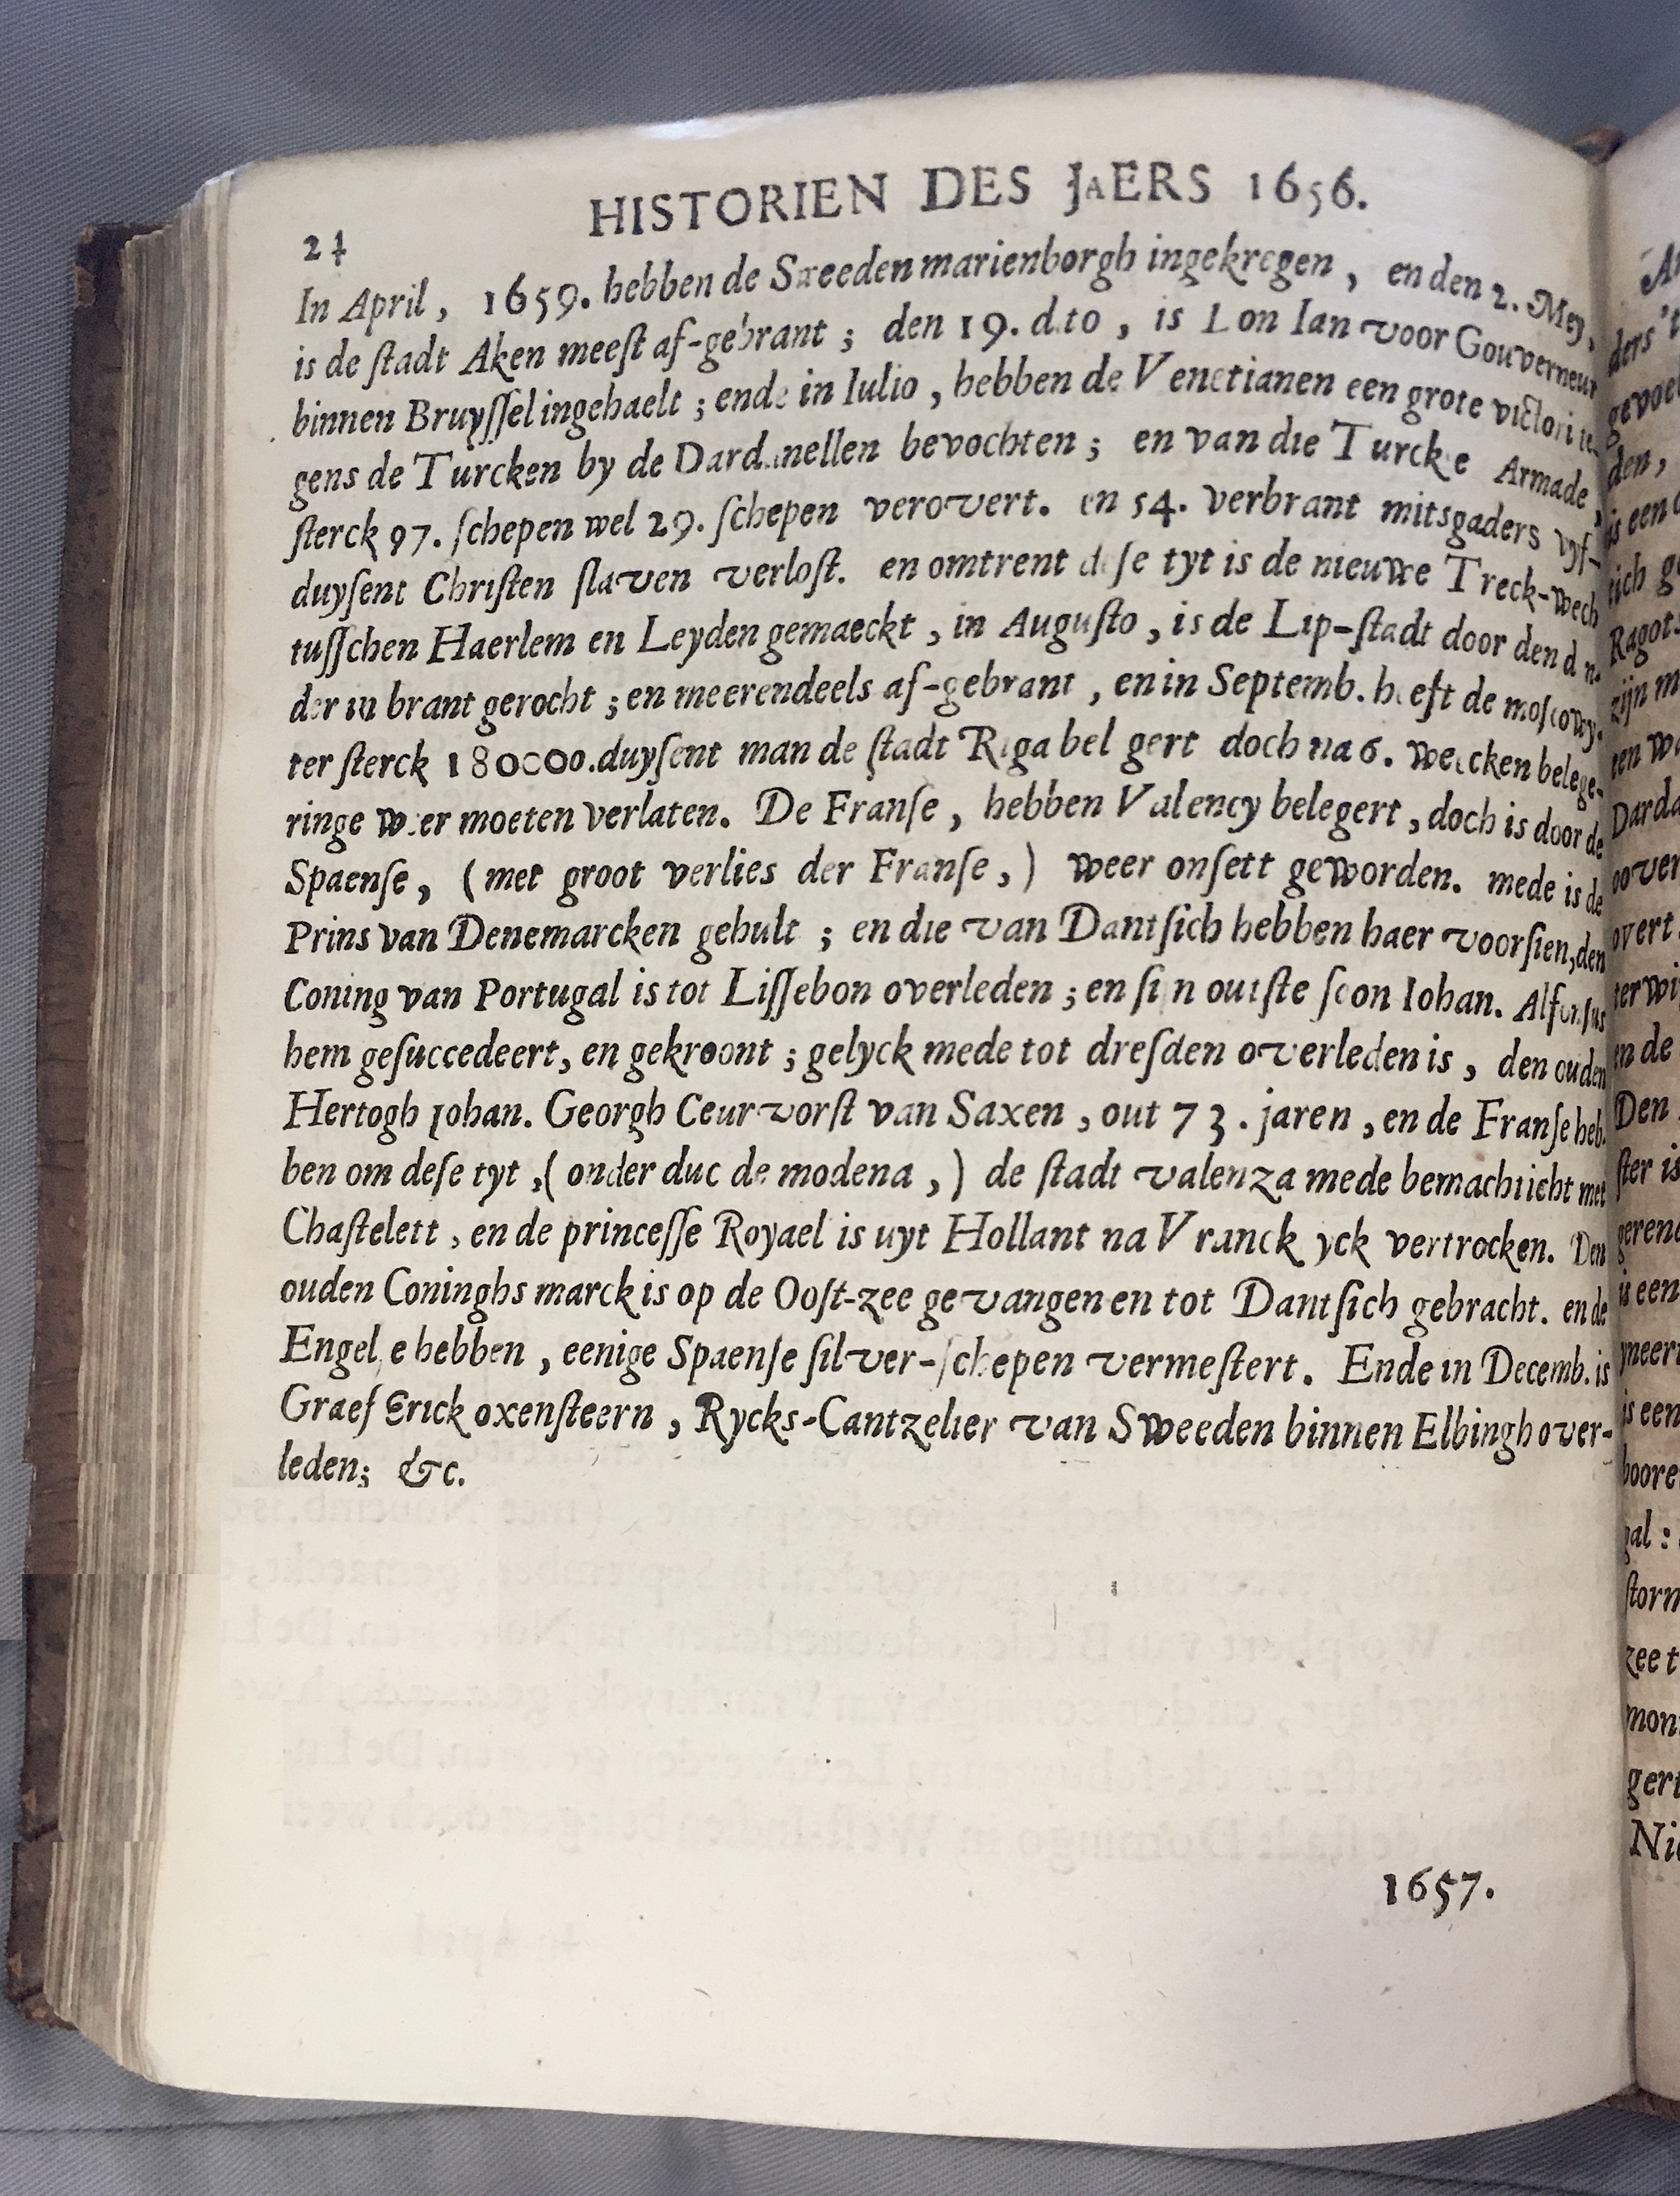 HISTORIEN DES JAERS 1656.
24
In April, 1659. hebben de Sweeden marienborgh ingekregen, en den 2. Mey,
is de ſtadt Aken meeſt af-gebrant; den 19. dito, is Don Ian voor Gouverneur
binnen Bruyſſel ingehaelt; ende in Iulio, hebben de Venetianen een grote victori te
gens de Turcken by de Dardanellen bevochten; en van die Turckſe Armade,
ſterck 97. ſchepen wel 29. ſchepen verovert. en 54. verbrant mitsgaders vyf-
duyſent Chriſten ſlaven verloſt. en omtrent deſe tyt is de nieuwe Treck-wech
tuſſchen Haerlem en Leyden gemaeckt, in Auguſto, is de Lip-ſtadt door den d n-
der in brant gerocht; en meerendeels af-gebrant, en in Septemb. heeft de moſcowy-
ter ſterck 180000. duyſent man de ſtadt Riga bel gert doch na 6. weecken belege-
ringe weer moeten verlaten. De Franſe, hebben Valency belegert, doch is door de
Spaenſe, (met groot verlies der Franſe,) weer onſett geworden. mede is de
Prins van Denemarcken gehult; en die van Dantſich hebben haer voorſien, den
Coning van Portugal is tot Liſſebon overleden; en ſi n outſte ſoon Iohan. Alfonſus
hem geſuccedeert, en gekroont; gelyck mede tot dreſden overleden is, den ouden
Hertogh Johan. Georgh Ceurvorſt van Saxen, out 73. jaren, en de Franſe heb-
ben om deſe tyt, (onder duc de modena,) de ſtadt valenza mede bemachticht met
Chaſtelett, en de princeſſe Royael is uyt Hollant na Vranck yck vertrocken. Den
ouden Coninghs marck is op de Ooſt-zee gevangen en tot Dantſich gebracht. en de
Engel e hebben, eenige Spaenſe ſilver-ſchepen vermeſtert. Ende in Decemb. is
Graef Erick oxenſteern, Rycks-Cantzelier van Sweeden binnen Elbingh over-
leden; &c.
1657.
ders 't
gevoe
den,
is een
rich g
Ragots
zijn m
ten w
Darda
over
overt
ter wi
en de
Den
ſter is
geren
is een
meer
is een
boore
gal:
ſtorm
zee t
mon
gert
Ni